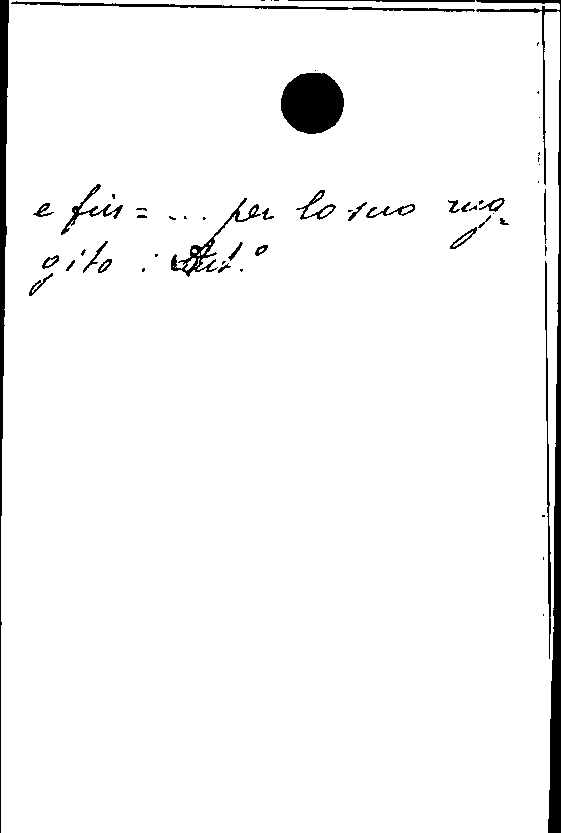 e fus = ... per lo suo rug=
gito : Aut.º